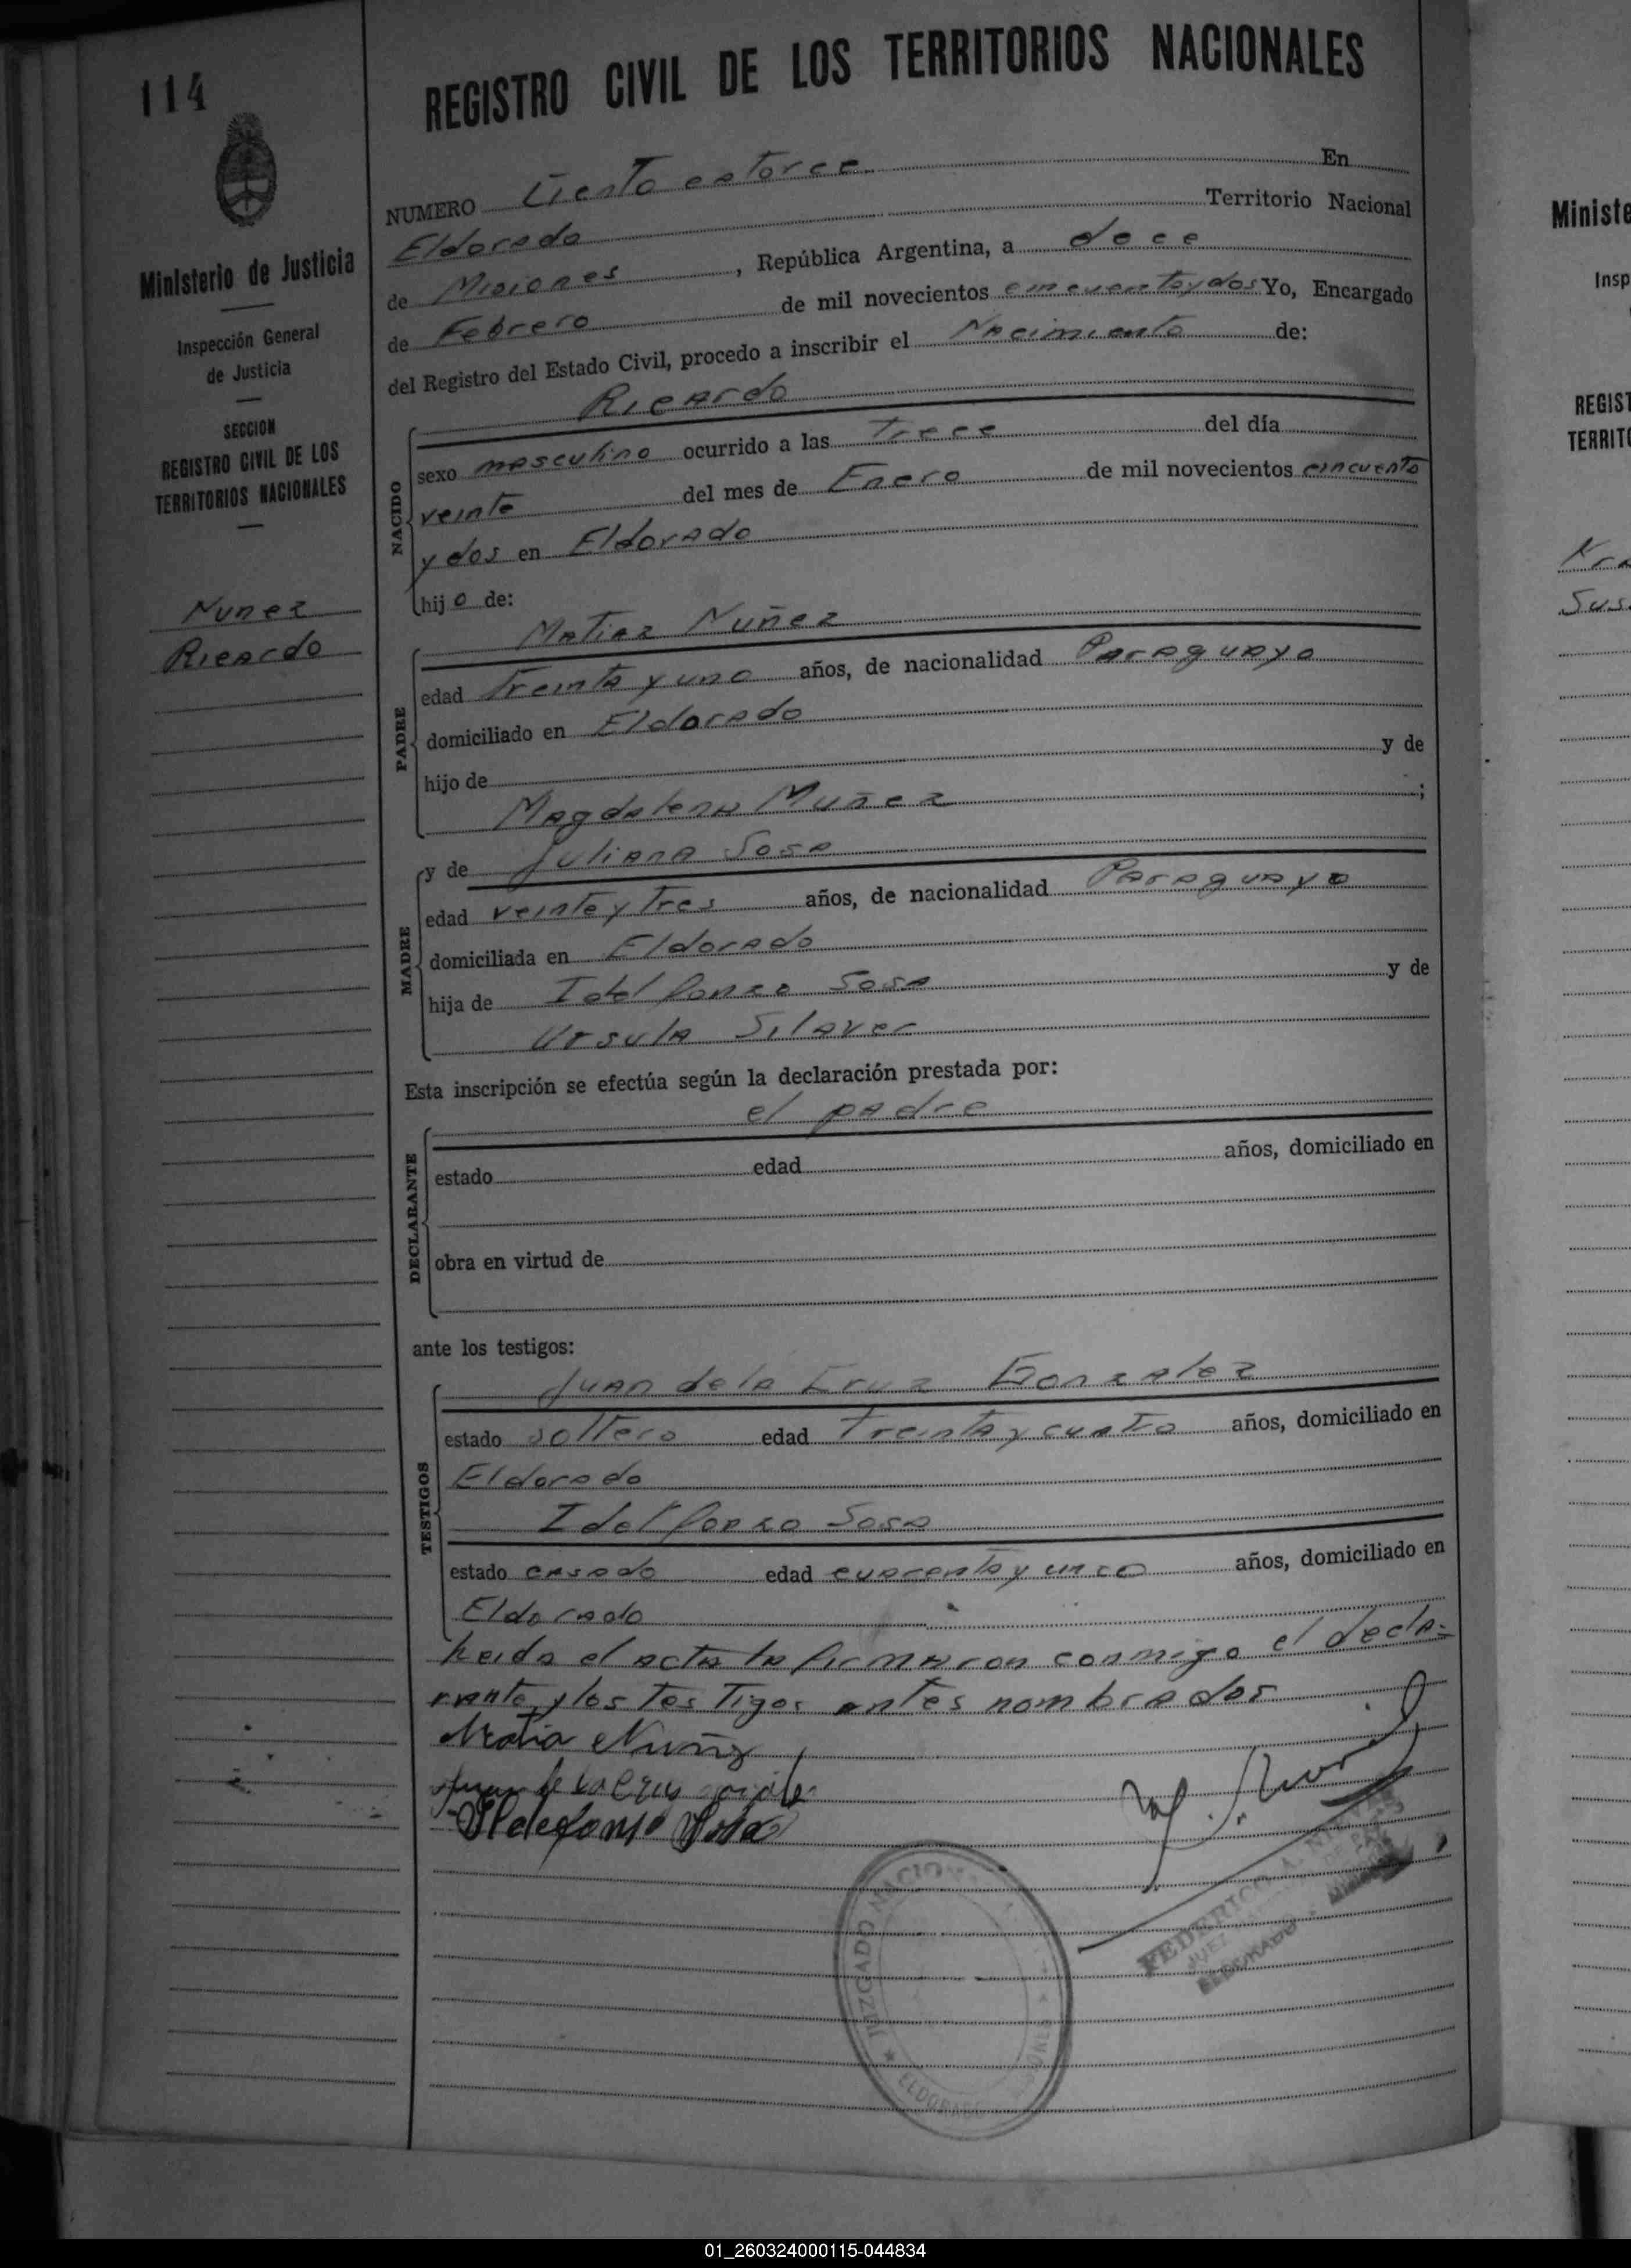 114
REGISTRO CIVIL DE LOS TERRITORIOS NACIONALES
Ministerio de Justicia
Inspección General
de Justicia
SECCION
REGISTRO CIVIL DE LOS
TERRITORIOS NACIONALES
Nunez
Ricardo
NUMERO Ciento catorce. En
Eldorado Territorio Nacional
de Misiones, República Argentina, a doce
de Febrero de mil novecientos cincuentaydos Yo, Encargado
del Registro del Estado Civil, procedo a inscribir el Nacimiento de:
Ricardo
NACIDO
sexo masculino ocurrido a las Trece del día
veinte del mes de Enero de mil novecientos cincuenta
y dos en Eldorado
hijo de:
Matiaz Nuñez
PADRE
edad Treinta y uno años, de nacionalidad Paraguaya
domiciliado en Eldorado
hijo de y de
Magdalena Nuñez ;
y de Juliana Sosa
MADRE
edad veinte y Tres años, de nacionalidad Paraguaya
domiciliada en Eldorado
hija de Idelfonzo Sosa y de
Ursula Silaver
Esta inscripción se efectúa según la declaración prestada por:
el padre
DECLARANTE
estado edad años, domiciliado en
obra en virtud de
ante los testigos:
Juan de la Cruz Gonzalez
TESTIGOS
estado soltero edad Treinta y cuatro años, domiciliado en
Eldorado
Idelfonzo Sosa
estado casado edad cuarenta y años, domiciliado en
Eldorado
Leida el acta la firmaron conmigo el decla-
rante y los Testigos antes nombrados
Matia Nuñez
Juan de la Cruz
Ildefonso Sosa
FEDERICO A.
JUEZ DE PAZ
ELDORADO - MISIONES
JUZGADO NACION
★ ELDORADO
Ministe
Insp
REGIST
TERRITO
01_260324000115-044834